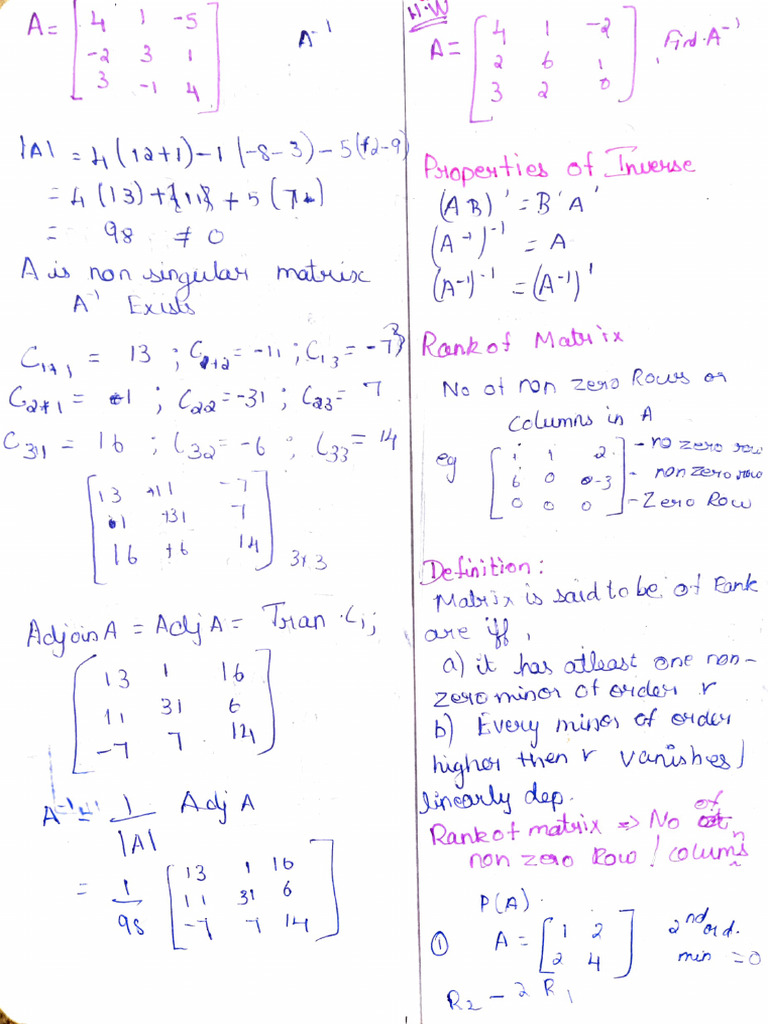 A = [ 4 1 -5
-2 3 1
3 -1 4 ]
A⁻¹
|A| = 4(12+1) - 1(-8-3) - 5(+2-9)
= 4(13) + 1(11) + 5(7)
= 98 ≠ 0
A is non singular matrix
A⁻¹ Exists
C₁₊₁ = 13 ; C₁₊₂ = -11 ; C₁₃ = -7
C₂₊₁ = 1 ; C₂₂ = -31 ; C₂₃ = 7
C₃₁ = 16 ; C₃₂ = -6 ; C₃₃ = 14
[ 13 +11 -7
1 +31 7
16 +6 14 ] 3×3
Adjoin A = Adj A = Tran. Cij
[ 13 1 16
11 31 6
-7 7 14 ]
A⁻¹ = 1/|A| Adj A
= 1/98 [ 13 1 16
11 31 6
-7 7 14 ]
H.W
A = [ 4 1 -2
2 6 1
3 2 0 ] , Find A⁻¹
Properties of Inverse
(AB)' = B'A'
(A⁻¹)⁻¹ = A
(A⁻¹)⁻¹ = (A⁻¹)'
Rank of Matrix
No of non zero Rows or
columns in A
eg [ 1 1 2 ] - no zero row
[ 6 0 -3 ] - non zero row
[ 0 0 0 ] - Zero Row
Definition:
Matrix is said to be of Rank
are iff,
a) it has atleast one non-
zero minor of order r
b) Every minor of order
higher then r vanishes/
linearly dep.
Rank of matrix ⇒ No of
non zero Row / colums
P(A).
① A = [ 1 2
2 4 ] 2nd ord.
min = 0
R₂ - 2 R₁